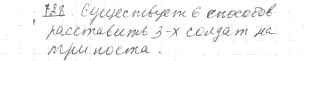 738. Существует 6 способов
расставить 3-х солдат на
три поста.